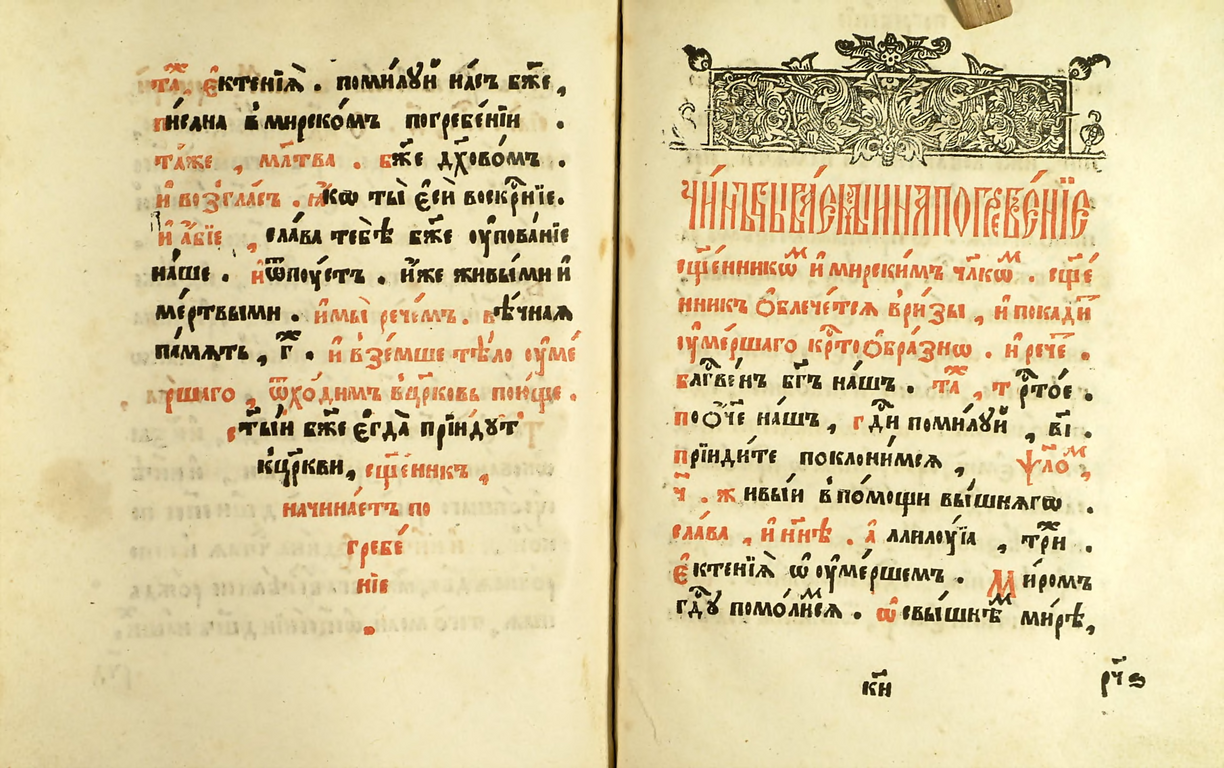 та́, є҆ктенїѧ̀ . поми́лꙋй на́съ бж҃е ,
пи́сана в̾ мирско́мъ погребе́нїи .
та́же , мл҃тва . бж҃е дх҃ово́мъ .
и҆ во́згласъ . ꙗ҆́кѡ ты̀ є҆сѝ воскр҃нїе .
и҆ а҆́бїе , сла́ва тебѣ̀ бж҃е ѹ҆пова́нїе
на́ше . и҆ ѿпоу́стъ . и҆́же живы́ми и҆
ме́ртвыми . и҆ мы̀ рече́мъ . вѣ́чнаѧ
па́мѧть , г҃ . и҆ взе́мше тѣ́ло ѹ҆ме́
ршаго , ѿхо́димъ в̾ цр҃ковь пою́ще .
ст҃ы́и бж҃е є҆гда̀ прїи́дꙋт
къ цр҃кви , сщ҃е́нникъ ,
начина́етъ по
гребе́
нїе
чи́нъ быва́емыи на погребе́нїе
сщ҃е́нникѡм и҆ мирски́мъ чл҃кѡм . сщ҃е́
нникъ ѻ҆блече́тсѧ в̾ ри́зы , и҆ покади́т
ѹ҆ме́ршаго крⷭ҇тоѻбра́знѡ . и҆ рече́ .
блⷭ҇ве́нъ бг҃ъ на́шъ . та́ , трⷭ҇то́е .
по ѻ҆́ч҃е на́шъ , гдⷭ҇и поми́лꙋй , в҃і .
прїиди́те поклони́мсѧ , ѱало́м ,
ч҃ . живы́и в̾ по́мощи вы́шнѧгѡ .
сла́ва , и҆ нн҃ѣ . а҆ллилоу́їа , три́ .
є҆ктенїѧ̀ ѡ҆ ѹ҆ме́ршемъ . Ми́ромъ
гдⷭ҇ꙋ помо́лимсѧ . ѡ҆ свы́шнѣм ми́рѣ ,
к҃и рч҃ѕ